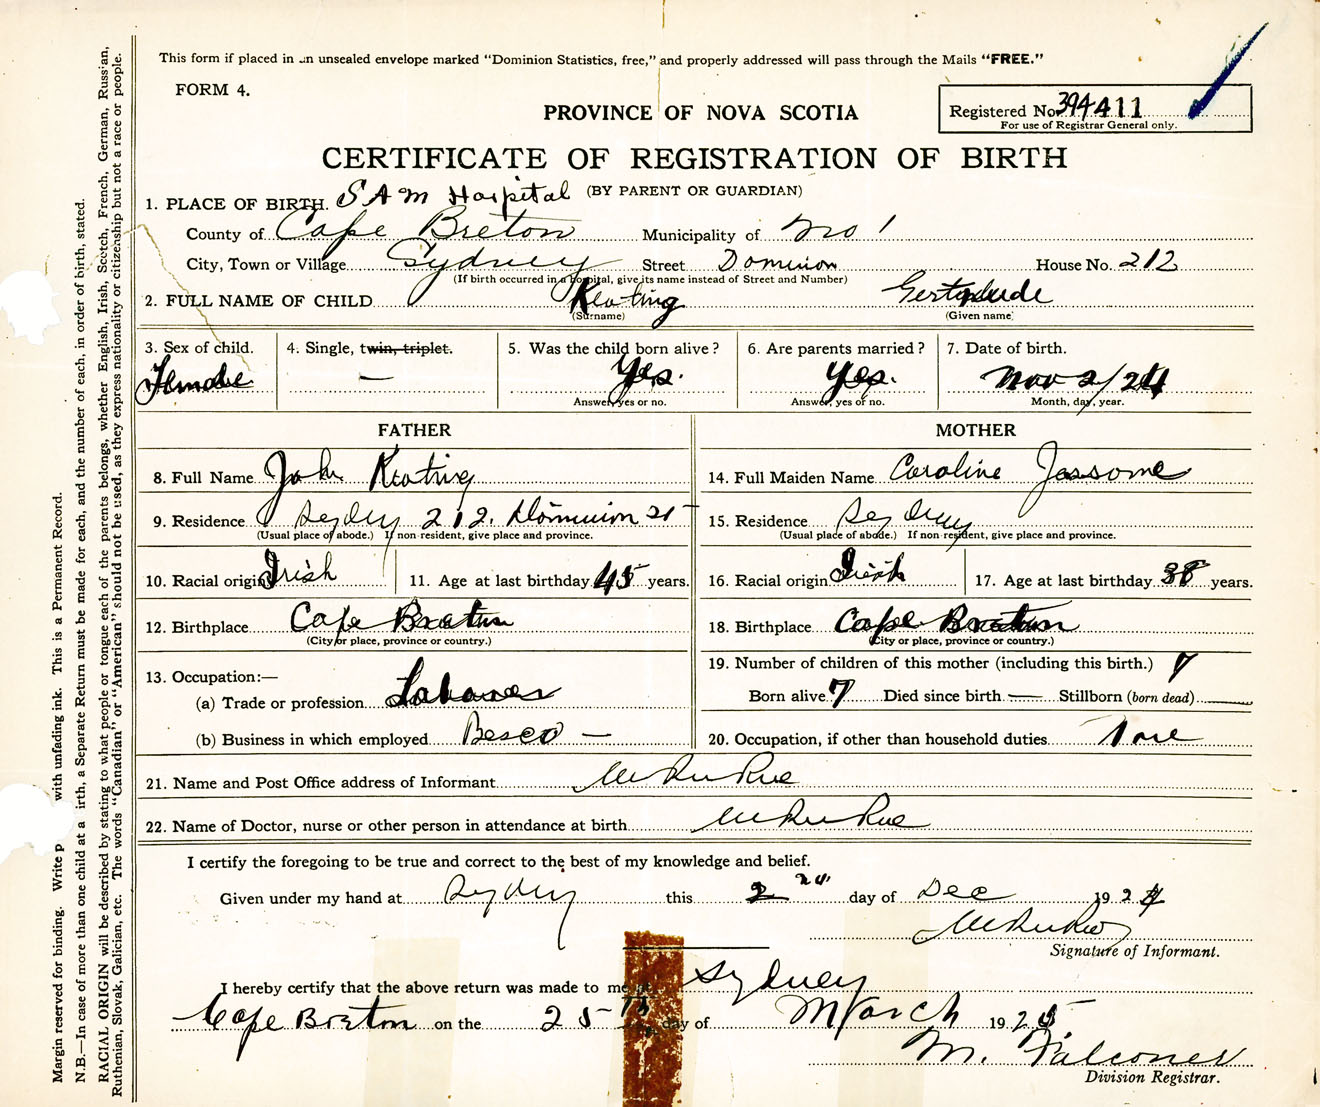 This form if placed in an unsealed envelope marked "Dominion Statistics, free," and properly addressed will pass through the Mails "FREE."
FORM 4.
PROVINCE OF NOVA SCOTIA
Registered No. 394411
For use of Registrar General only.
CERTIFICATE OF REGISTRATION OF BIRTH
(BY PARENT OR GUARDIAN)
1. PLACE OF BIRTH. S A M Hospital
County of Cape Breton Municipality of No 1
City, Town or Village Sydney Street Dominion House No. 212
(If birth occurred in a hospital, give its name instead of Street and Number)
2. FULL NAME OF CHILD Keating Gertrude
(Surname) (Given name)
3. Sex of child. 4. Single, twin, triplet. 5. Was the child born alive? 6. Are parents married? 7. Date of birth.
Female — Yes. Yes. Nov 2/24
Answer, yes or no. Answer, yes or no. Month, day, year.
FATHER MOTHER
8. Full Name John Keating 14. Full Maiden Name Caroline Jessome
9. Residence Sydney 212. Dominion St 15. Residence Sydney
(Usual place of abode.) If non-resident, give place and province. (Usual place of abode.) If non-resident, give place and province.
10. Racial origin Irish 11. Age at last birthday 45 years. 16. Racial origin Irish 17. Age at last birthday 38 years.
12. Birthplace Cape Breton 18. Birthplace Cape Breton
(City or place, province or country.) (City or place, province or country.)
13. Occupation:— 19. Number of children of this mother (including this birth.) 7
(a) Trade or profession Labourer Born alive 7 Died since birth — Stillborn (born dead)
(b) Business in which employed Besco — 20. Occupation, if other than household duties None
21. Name and Post Office address of Informant
22. Name of Doctor, nurse or other person in attendance at birth
I certify the foregoing to be true and correct to the best of my knowledge and belief.
Given under my hand at Sydney this 2 day of Dec 1924
Signature of Informant.
I hereby certify that the above return was made to me Sydney
Cape Breton on the 25 th day of March 1925
M. Falconer
Division Registrar.
Margin reserved for binding. Write p with unfading ink. This is a Permanent Record.
N.B.—In case of more than one child at a irth, a Separate Return must be made for each, and the number of each, in order of birth, stated.
RACIAL ORIGIN will be described by stating to what people or tongue each of the parents belongs, whether English, Irish, Scotch, French, German, Russian,
Ruthenian, Slovak, Galician, etc. The words "Canadian" or "American" should not be used, as they express nationality or citizenship but not a race or people.